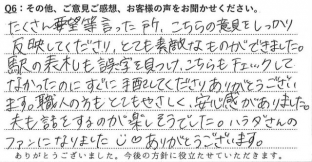 Q6：その他、ご意見ご感想、お客様の声をお聞かせください。
たくさん要望等言った所、こちらの意見をしっかり
反映してくださり、とても素敵なものができました。
駅の表札も誤字を見つけ、こちらもチェックして
なかったのにすぐに手配してくださりありがとうござい
ます。職人のうちもとてもやさしく、安心感がありました。
夫も話をするのが楽しそうでした。ハラダさんの
ファンになりました♡ありがとうございます。
ありがとうございました。今後の方針に役立たせていただきます。